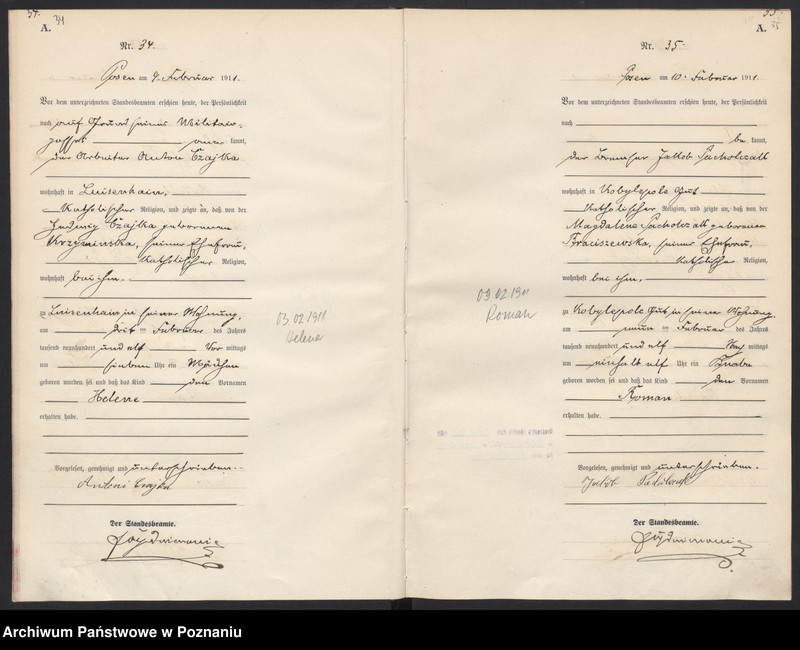 34.
34
A.
Nr. 34.
Posen am 9. Februar 1911.
Vor dem unterzeichneten Standesbeamten erschien heute, der Persönlichkeit
nach auf Grund seines Militair-
passes aner kannt,
der Arbeiter Anton Czajka
wohnhaft in Luisenhain,
katholischer Religion, und zeigte an, daß von der
Hedwig Czajka geborenen
Krzyminska, seiner Ehefrau,
katholischer Religion,
wohnhaft bei ihm,
zu Luisenhain in seiner Wohnung,
am drei ten Februar des Jahres
tausend neunhundert und elf Vor mittags
um sieben Uhr ein Mädchen
geboren worden sei und daß das Kind den Vornamen
Helene
erhalten habe.
Vorgelesen, genehmigt und unterschrieben.
Antoni Czajka
Der Standesbeamte.
03.02.1911
Helena
35.
35
A.
Nr. 35.
Posen am 10. Februar 1911.
Vor dem unterzeichneten Standesbeamten erschien heute, der Persönlichkeit
nach
be kannt,
der Bremser Jakob
wohnhaft in Kobylepole Gut
katholischer Religion, und zeigte an, daß von der
Magdalena geborenen
Fraciszewska, seiner Ehefrau,
katholischer Religion,
wohnhaft bei ihm,
zu Kobylepole Gut in seiner Wohnung,
am neun ten Februar des Jahres
tausend neunhundert und elf Vor mittags
um einhalb elf Uhr ein Knabe
geboren worden sei und daß das Kind den Vornamen
Roman
erhalten habe.
Vorgelesen, genehmigt und unterschrieben.
Jakób
Der Standesbeamte.
09.02.1911
Roman
Archiwum Państwowe w Poznaniu